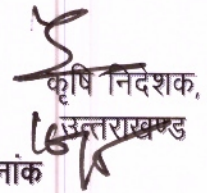 कृषि निदेशक,
उत्तराखण्ड
नांक